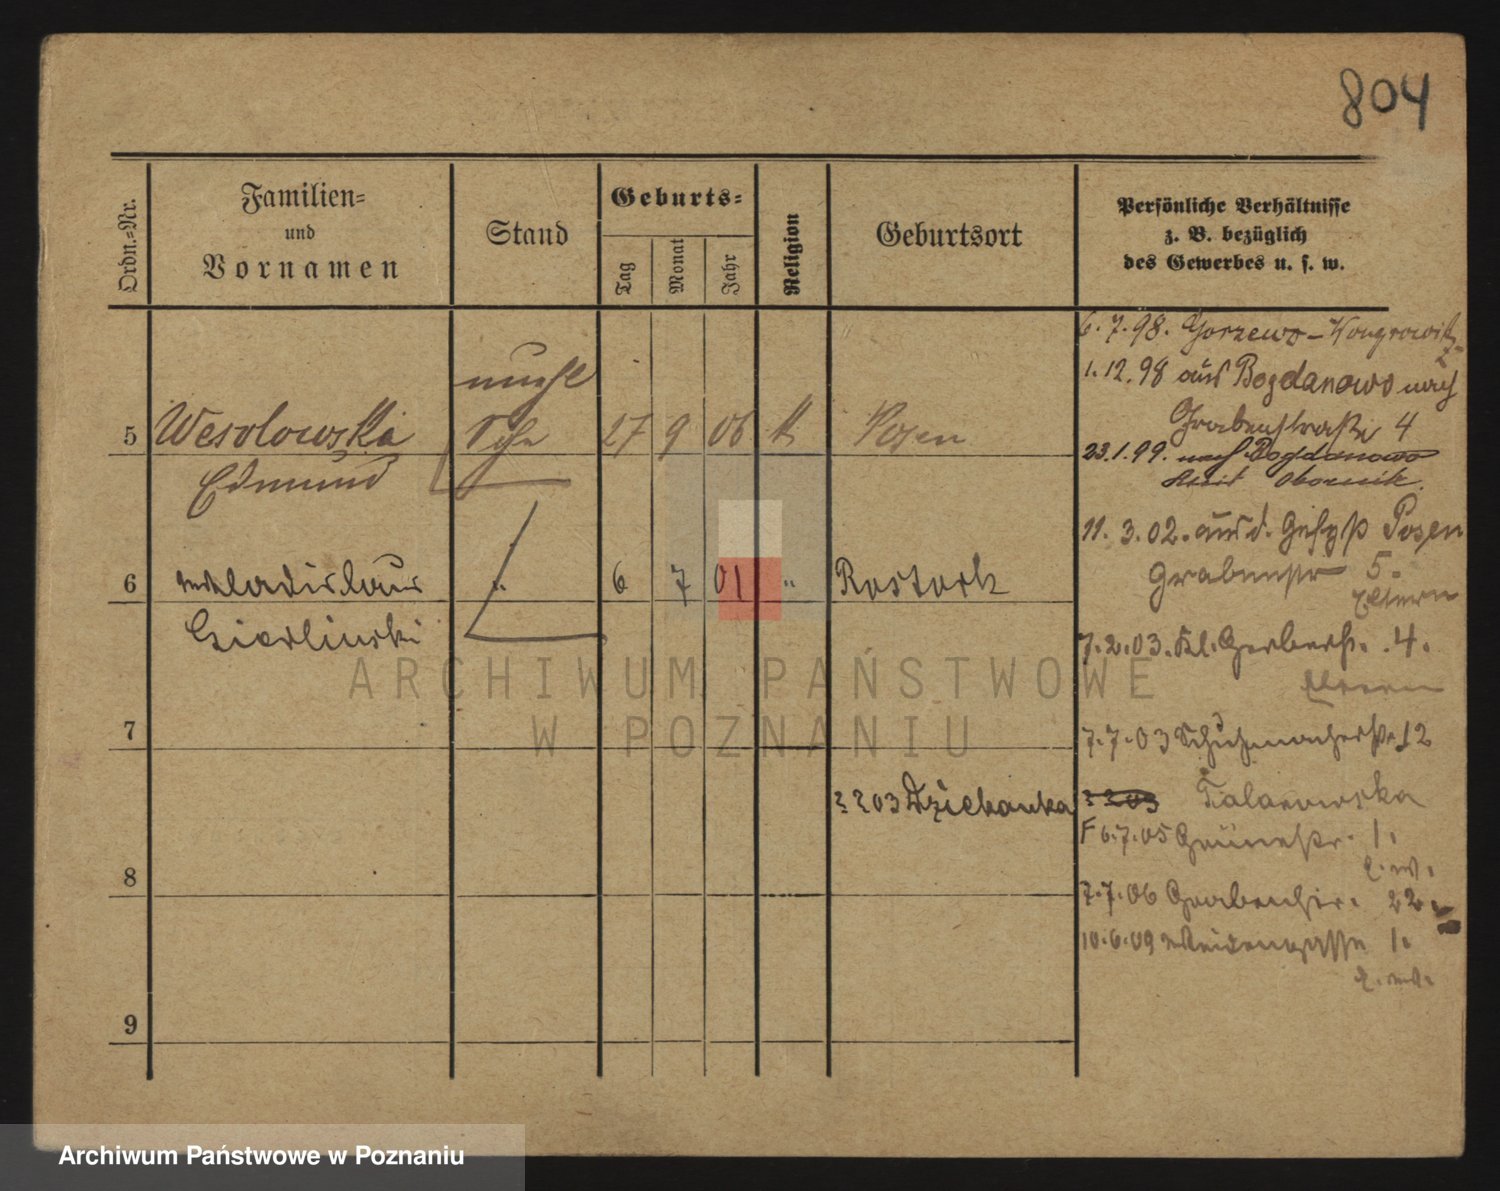 804
Ordn.=Nr.
Familien=
und
Vornamen
Stand
Geburts=
Tag
Monat
Jahr
Religion
Geburtsort
Persönliche Verhältnisse
z. B. bezüglich
des Gewerbes u. s. w.
6.7.98. Gorzewo - Wongrowitz
1.12.98 aus Bogdanowo nach
Grabenstraße 4
23.1.99. nach Bogdanowo
Obornik.
unehl
5 Wesolowska Sohn 27 9 06 k Posen
Edmund
11. 3. 02. aus d. Posen
Grabenstr 5.
Eltern
6 Wladislaus " 6 7 01 " Rostock
Gierlinski
7.2.03. Kl. Gerberstr. 4.
Eltern
7
7.7.03 Schuhmacherstr. 12
2 2 03 Dziekanka
2 2 03
F 6.7.05 Grünestr. 1.
8
7.7.06 Grabenstr. 22.
10.6.09 Weidengasse 1.
9
ARCHIWUM PAŃSTWOWE
W POZNANIU
Archiwum Państwowe w Poznaniu